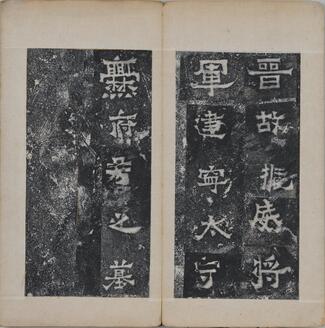 晉故振威将
軍建寧太守
爨府君之墓